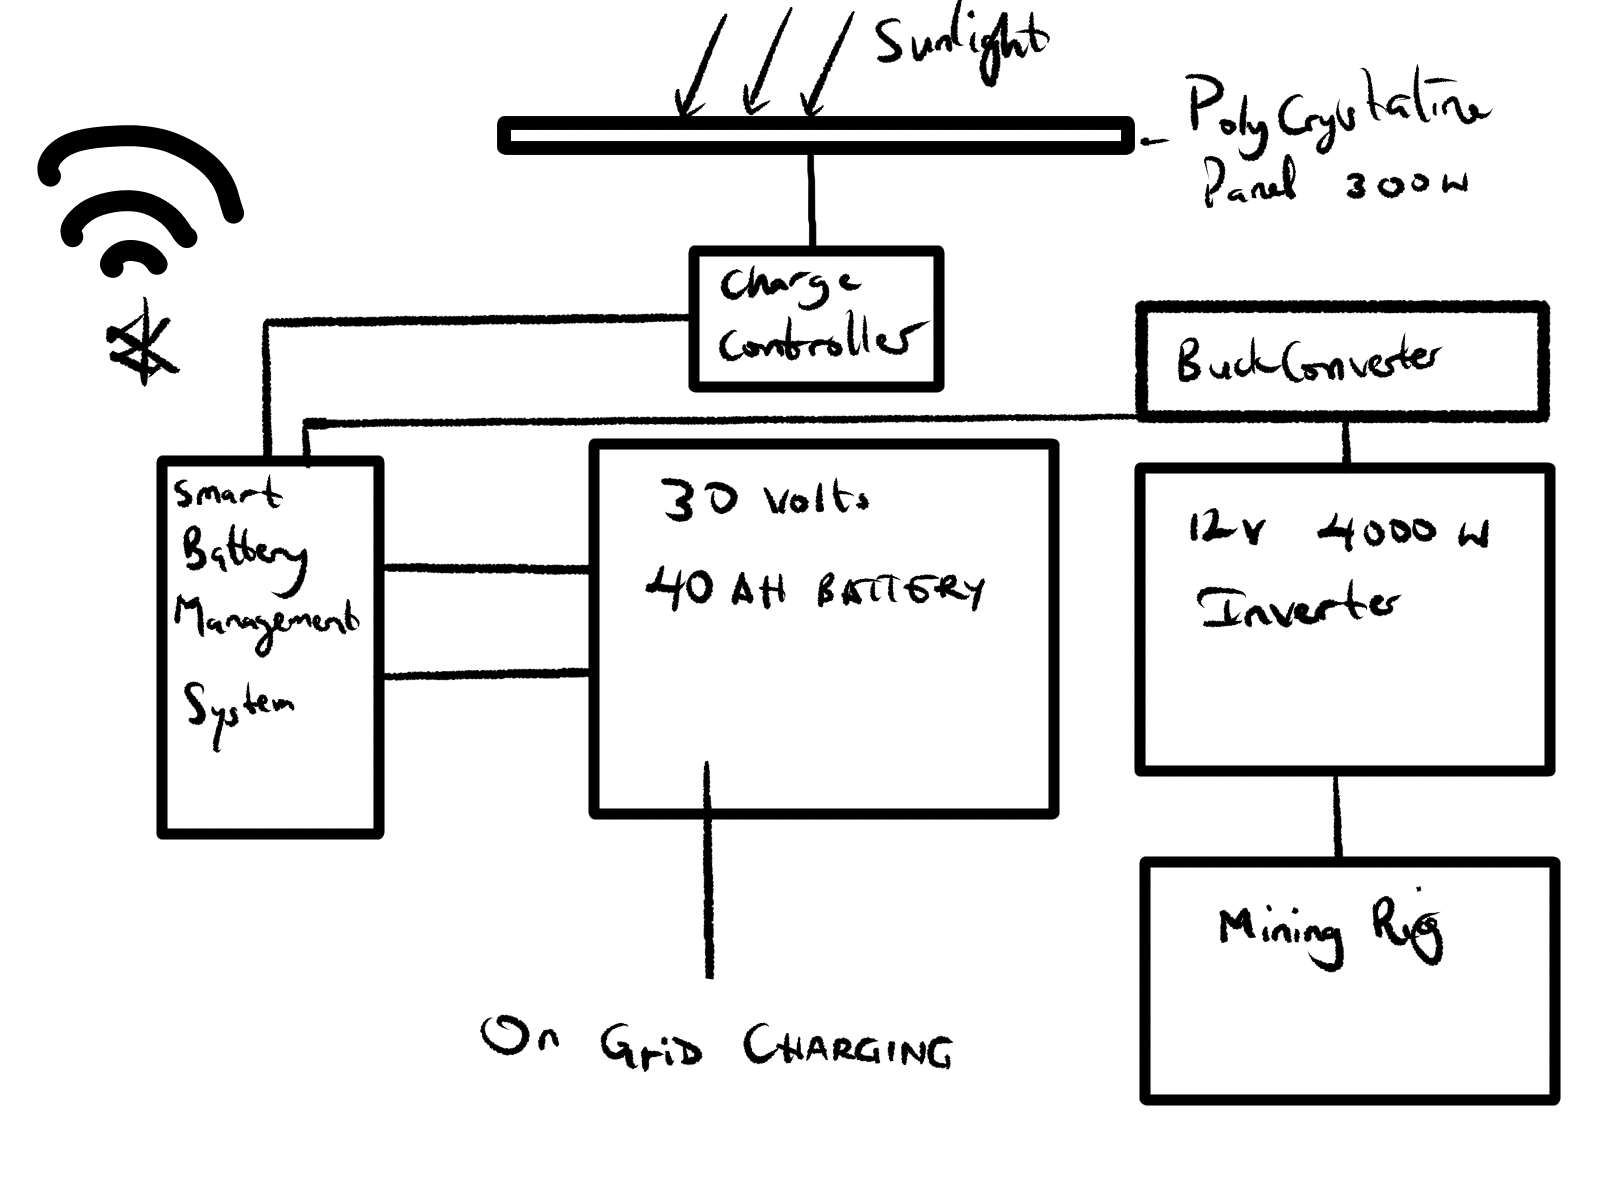 Sunlight
PolyCrystaline
Panel 300W
Charge
Controller
BuckConverter
Smart
Battery
Management
System
30 Volts
40 AH BATTERY
12V 4000 W
Inverter
Mining Rig
On GriD CHARGING